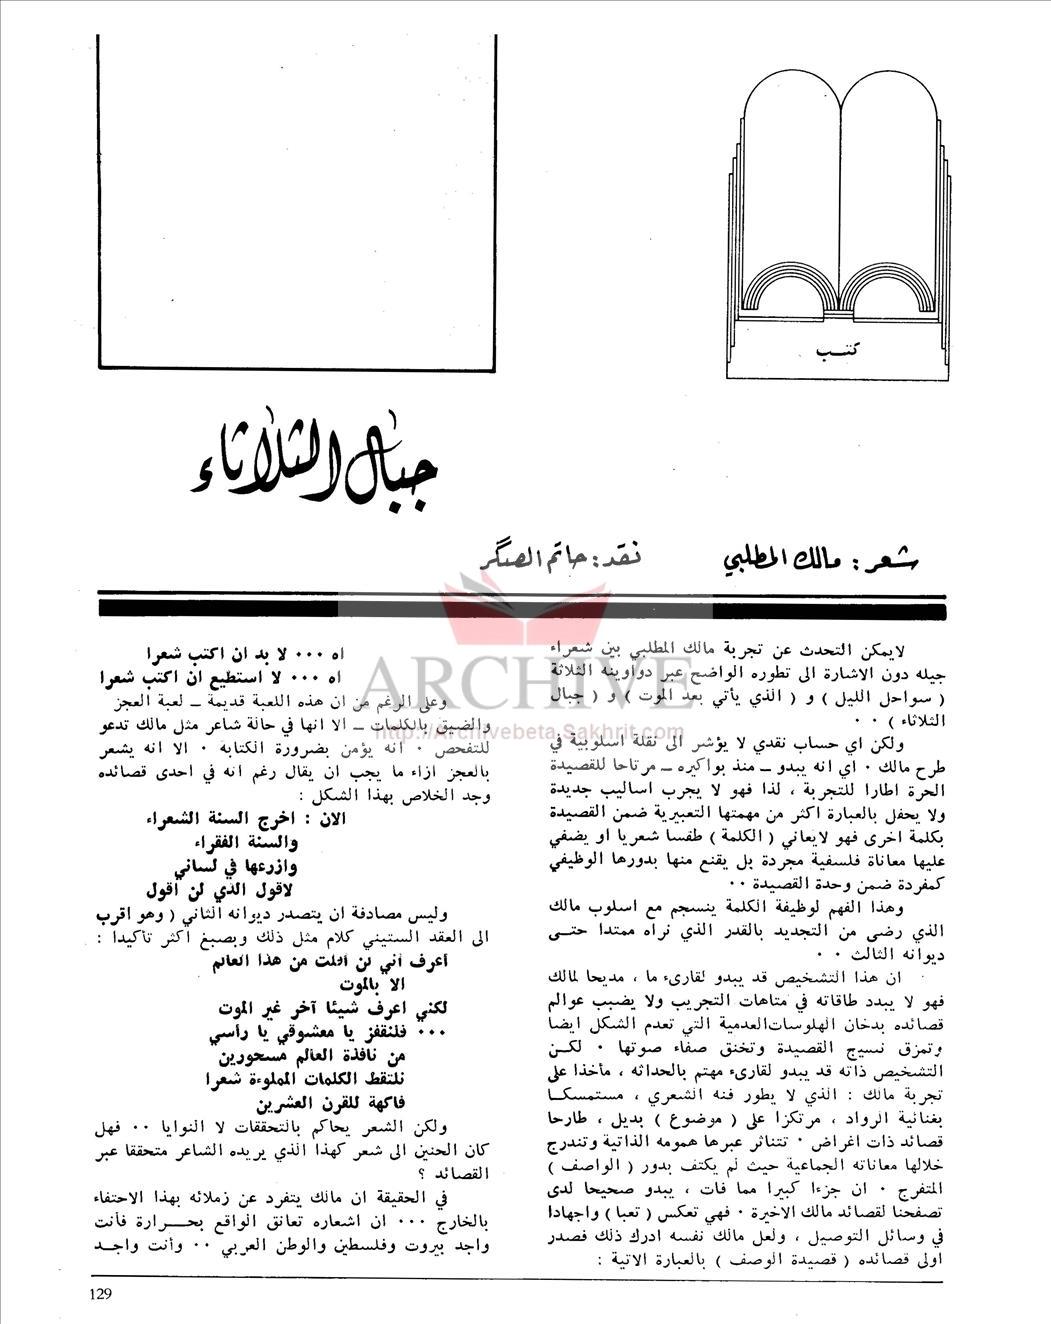 كتب
جبال الثلاثاء
شعر: مالك المطلبي
نقد: حاتم الصگر
لايمكن التحدث عن تجربة مالك المطلبي بين شعراء
جيله دون الاشارة الى تطوره الواضح عبر دواوينه الثلاثة
( سواحل الليل ) و ( الذي يأتي بعد الموت ) و ( جبال
الثلاثاء ) ٠٠
ولكن اي حساب نقدي لا يؤشر الى نقلة اسلوبية في
طرح مالك ٠ اي انه يبدو ــ منذ بواكيره ــ مرتاحا للقصيدة
الحرة اطارا للتجربة ، لذا فهو لا يجرب اساليب جديدة
ولا يحفل بالعبارة اكثر من مهمتها التعبيرية ضمن القصيدة
بكلمة اخرى فهو لايعاني ( الكلمة ) طقسا شعريا او يضفي
عليها معاناة فلسفية مجردة بل يقنع منها بدورها الوظيفي
كمفردة ضمن وحدة القصيدة ٠٠
وهذا الفهم لوظيفة الكلمة ينسجم مع اسلوب مالك
الذي رضى من التجديد بالقدر الذي نراه ممتدا حتــى
ديوانه الثالث ٠٠
ان هذا التشخيص قد يبدو لقارىء ما ، مديحا لمالك
فهو لا يبدد طاقاته في متاهات التجريب ولا يضبب عوالم
قصائده بدخان الهلوسات العدمية التي تعدم الشكل ايضا
وتمزق نسيج القصيدة وتخنق صفاء صوتها ٠ لكــن
التشخيص ذاته قد يبدو لقارىء مهتم بالحداثه ، مأخذا على
تجربة مالك : الذي لا يطور فنه الشعري ، مستمسكـا
بغنائية الرواد ، مرتكزا على ( موضوع ) بديل ، طارحا
قصائد ذات اغراض ٠ تتناثر عبرها همومه الذاتية وتندرج
خلالها معاناته الجماعية حيث لم يكتف بدور ( الواصف )
المتفرج ٠ ان جزءا كبيرا مما فات ، يبدو صحيحا لدى
تصفحنا لقصائد مالك الاخيرة ٠ فهي تعكس ( تعبا ) واجهادا
في وسائل التوصيل ، ولعل مالك نفسه ادرك ذلك فصدر
اولى قصائده ( قصيدة الوصف ) بالعبارة الاتية :
اه ٠٠٠ لا بد ان اكتب شعرا
اه ٠٠٠ لا استطيع ان اكتب شعرا
وعلى الرغم من ان هذه اللعبة قديمة ــ لعبة العجز
والضيق بالكلمات ــ الا انها في حالة شاعر مثل مالك تدعو
للتفحص ٠ انه يؤمن بضرورة الكتابة ٠ الا انه يشعر
بالعجز ازاء ما يجب ان يقال رغم انه في احدى قصائده
وجد الخلاص بهذا الشكل :
الان : اخرج السنة الشعراء
والسنة الفقراء
وازرعها في لساني
لاقول الذي لن أقول
وليس مصادفة ان يتصدر ديوانه الثاني ( وهو اقرب
الى العقد الستيني كلام مثل ذلك وبصيغ اكثر تأكيدا :
اعرف اني لن افلت من هذا العالم
الا بالموت
لكني اعرف شيئا آخر غير الموت
٠٠٠ فلنقفز يا معشوقي يا رأسي
من نافذة العالم مسحورين
نلتقط الكلمات المملوءة شعرا
فاكهة للقرن العشرين
ولكن الشعر يحاكم بالتحققات لا النوايا ٠٠ فهل
كان الحنين الى شعر كهذا الذي يريده الشاعر متحققا عبر
القصائد ؟
في الحقيقة ان مالك يتفرد عن زملائه بهذا الاحتفاء
بالخارج ٠٠٠ ان اشعاره تعانق الواقع بحــرارة فأنت
واجد بيروت وفلسطين والوطن العربي ٠٠ وأنت واجـد
129
ARCHIVE
http://Archivebeta.Sakhrit.com